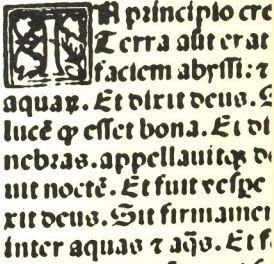 IN principio cre
Terra aūt erat
faciem abyssi: ⁊
aquaꝝ. Et dixit deus. S
lucē ꝙ esset bona. Et di
nebras. appellauitqꝫ d
uit noctē. Et fuit vespe
xit deus. Sit firmamen
inter aquas ⁊ aq̄s. Et f